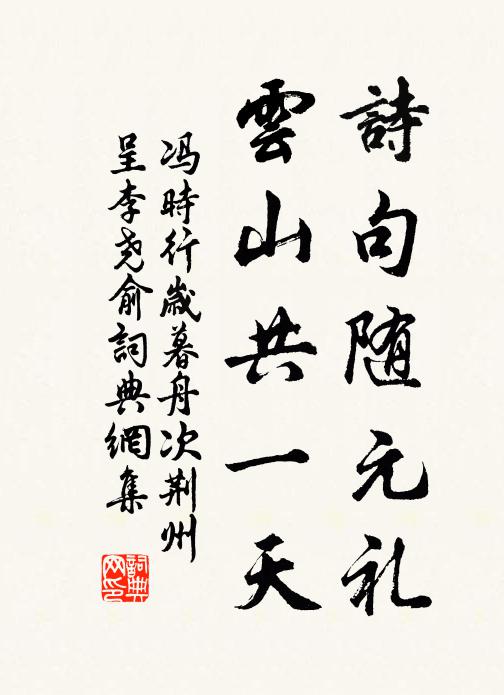 詩句随元礼
雲山共一天
冯時行歳暮舟次荆州
呈李尧俞詞典網集
詞典网印